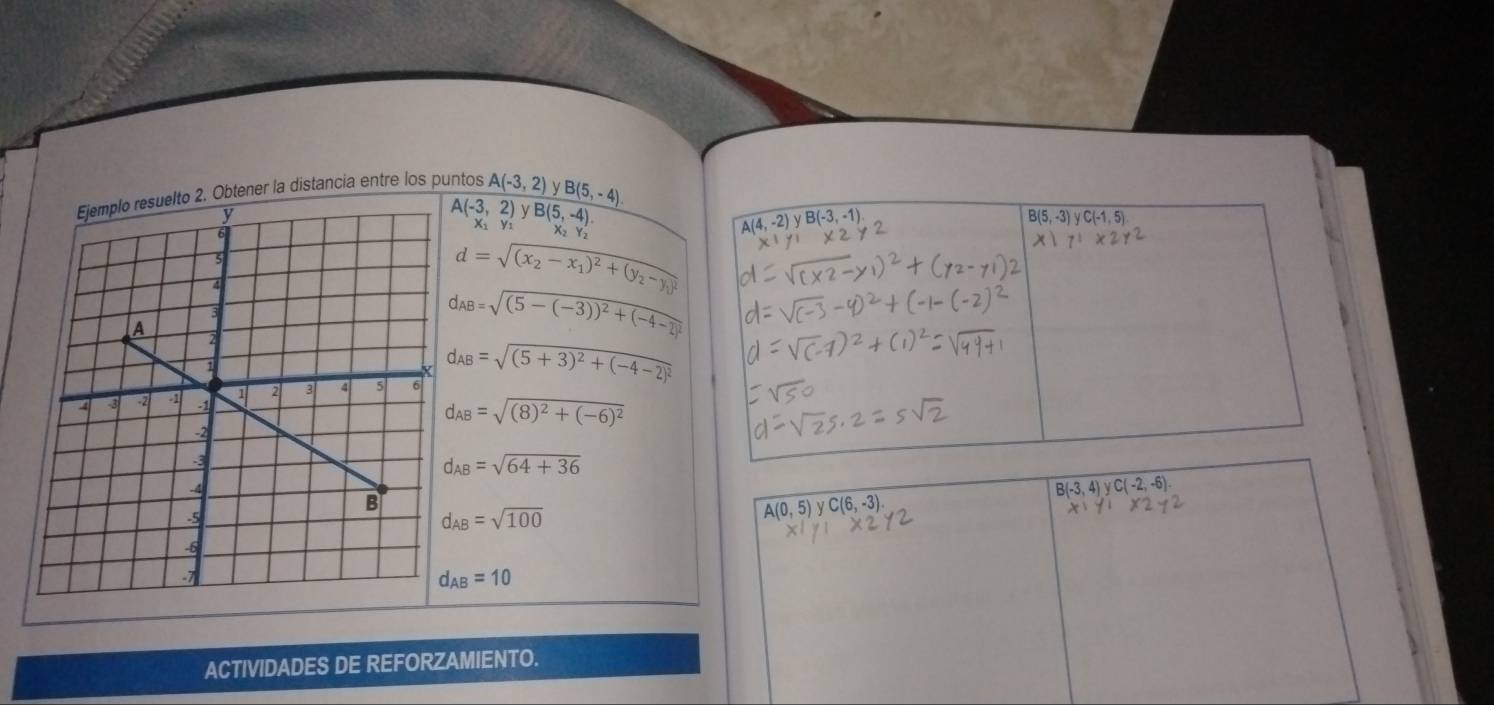 Ejemplo resuelto 2. Obtener la distancia entre los puntos A(-3, 2) y B(5, - 4).
y
6
5
4
3
2
1
A
x
-4 -3 -2 -1 1 2 3 4 5 6
-1
-2
-3
-4
-5
-6
-7
B
A(-3, 2) y B(5, -4).
X₁ y₁ X₂ Y₂
d = √((x₂ − x₁)² + (y₂ − y₁)²)
dAB = √((5 − (−3))² + (−4 − 2)²)
dAB = √((5 + 3)² + (−4 − 2)²)
dAB = √((8)² + (−6)²)
dAB = √(64 + 36)
dAB = √100
dAB = 10
ACTIVIDADES DE REFORZAMIENTO.
A(4, -2) y B(-3, -1).
x1 y1 x2 y2
d = √(x2-x1)² + (y2-y1)2
d = √(-3-4)² + (-1-(-2)²
d = √(-7)² + (1)² = √49+1
= √50
d = √25.2 = 5√2
B(5, -3) y C(-1, 5).
x1 y1 x2 y2
A(0, 5) y C(6, -3).
x1 y1 x2 y2
B(-3, 4) y C( -2, -6).
x1 y1 x2 y2